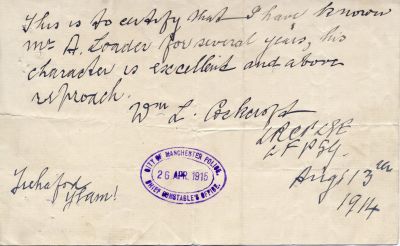 This is to certify that I have known
Mr A. Loader for several years, his
character is excellent and above
reproach.
Wm L. Cockcroft
LRCP LSE
LFPSG.
CITY OF MANCHESTER POLICE.
26 APR. 1915
CHIEF CONSTABLE'S OFFICE.
Augt 13th
1914